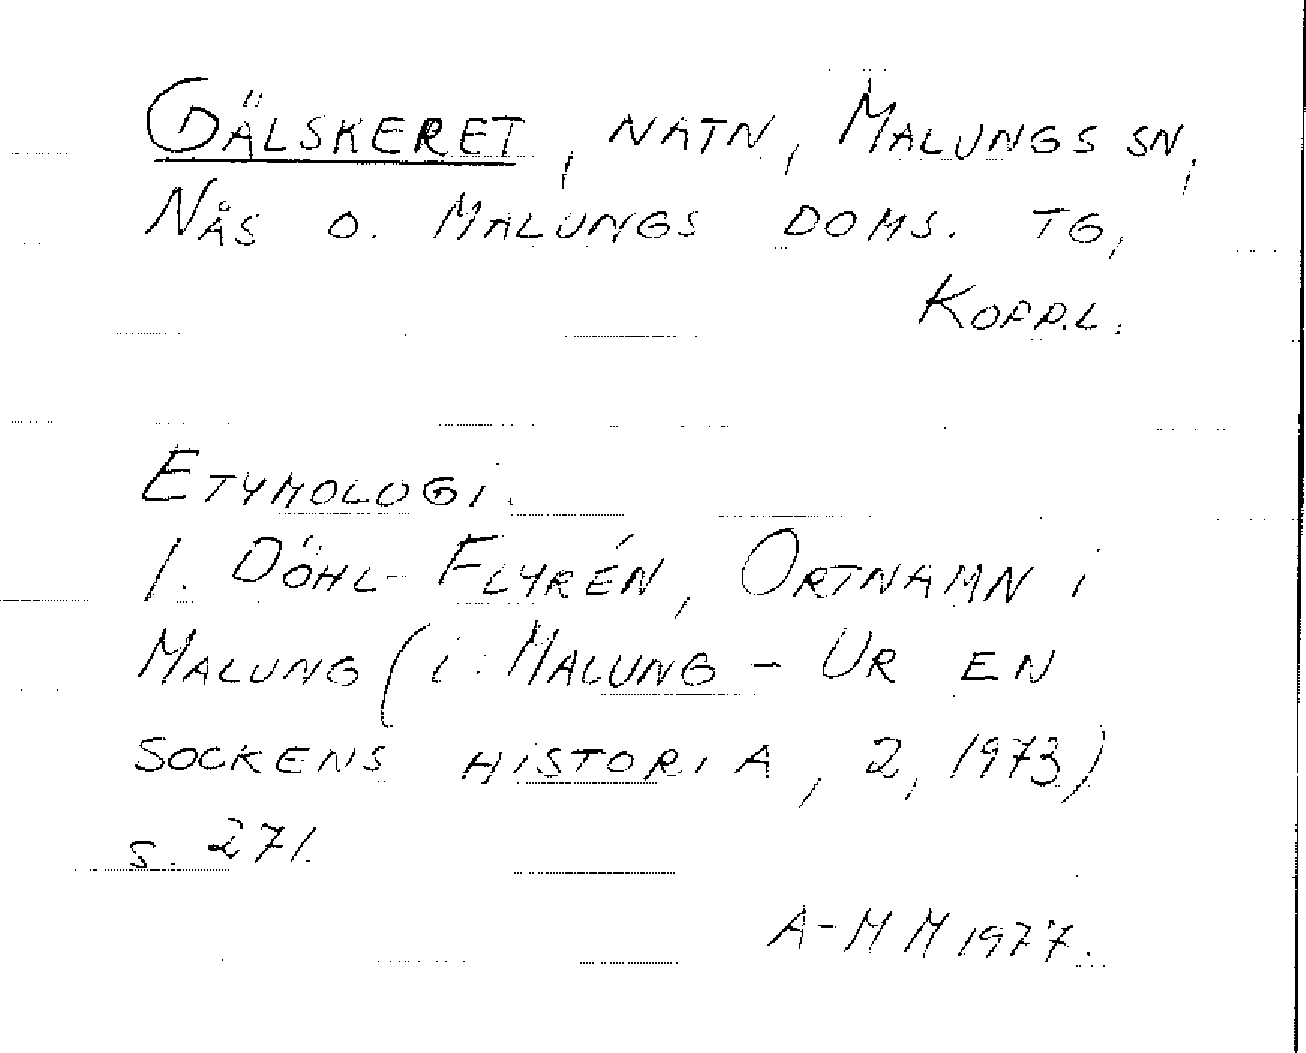 GÄLSKERET, NATN, MALUNGS SN,
NÅS O. MALUNGS DOMS. TG,
KOPP.L.
ETYMOLOGI.
I. DÖHL-FLYRÉN, ORTNAMN i
MALUNG (i: MALUNG – UR EN
SOCKENS HISTORIA, 2, 1973)
S. 271.
A-M M 1977.